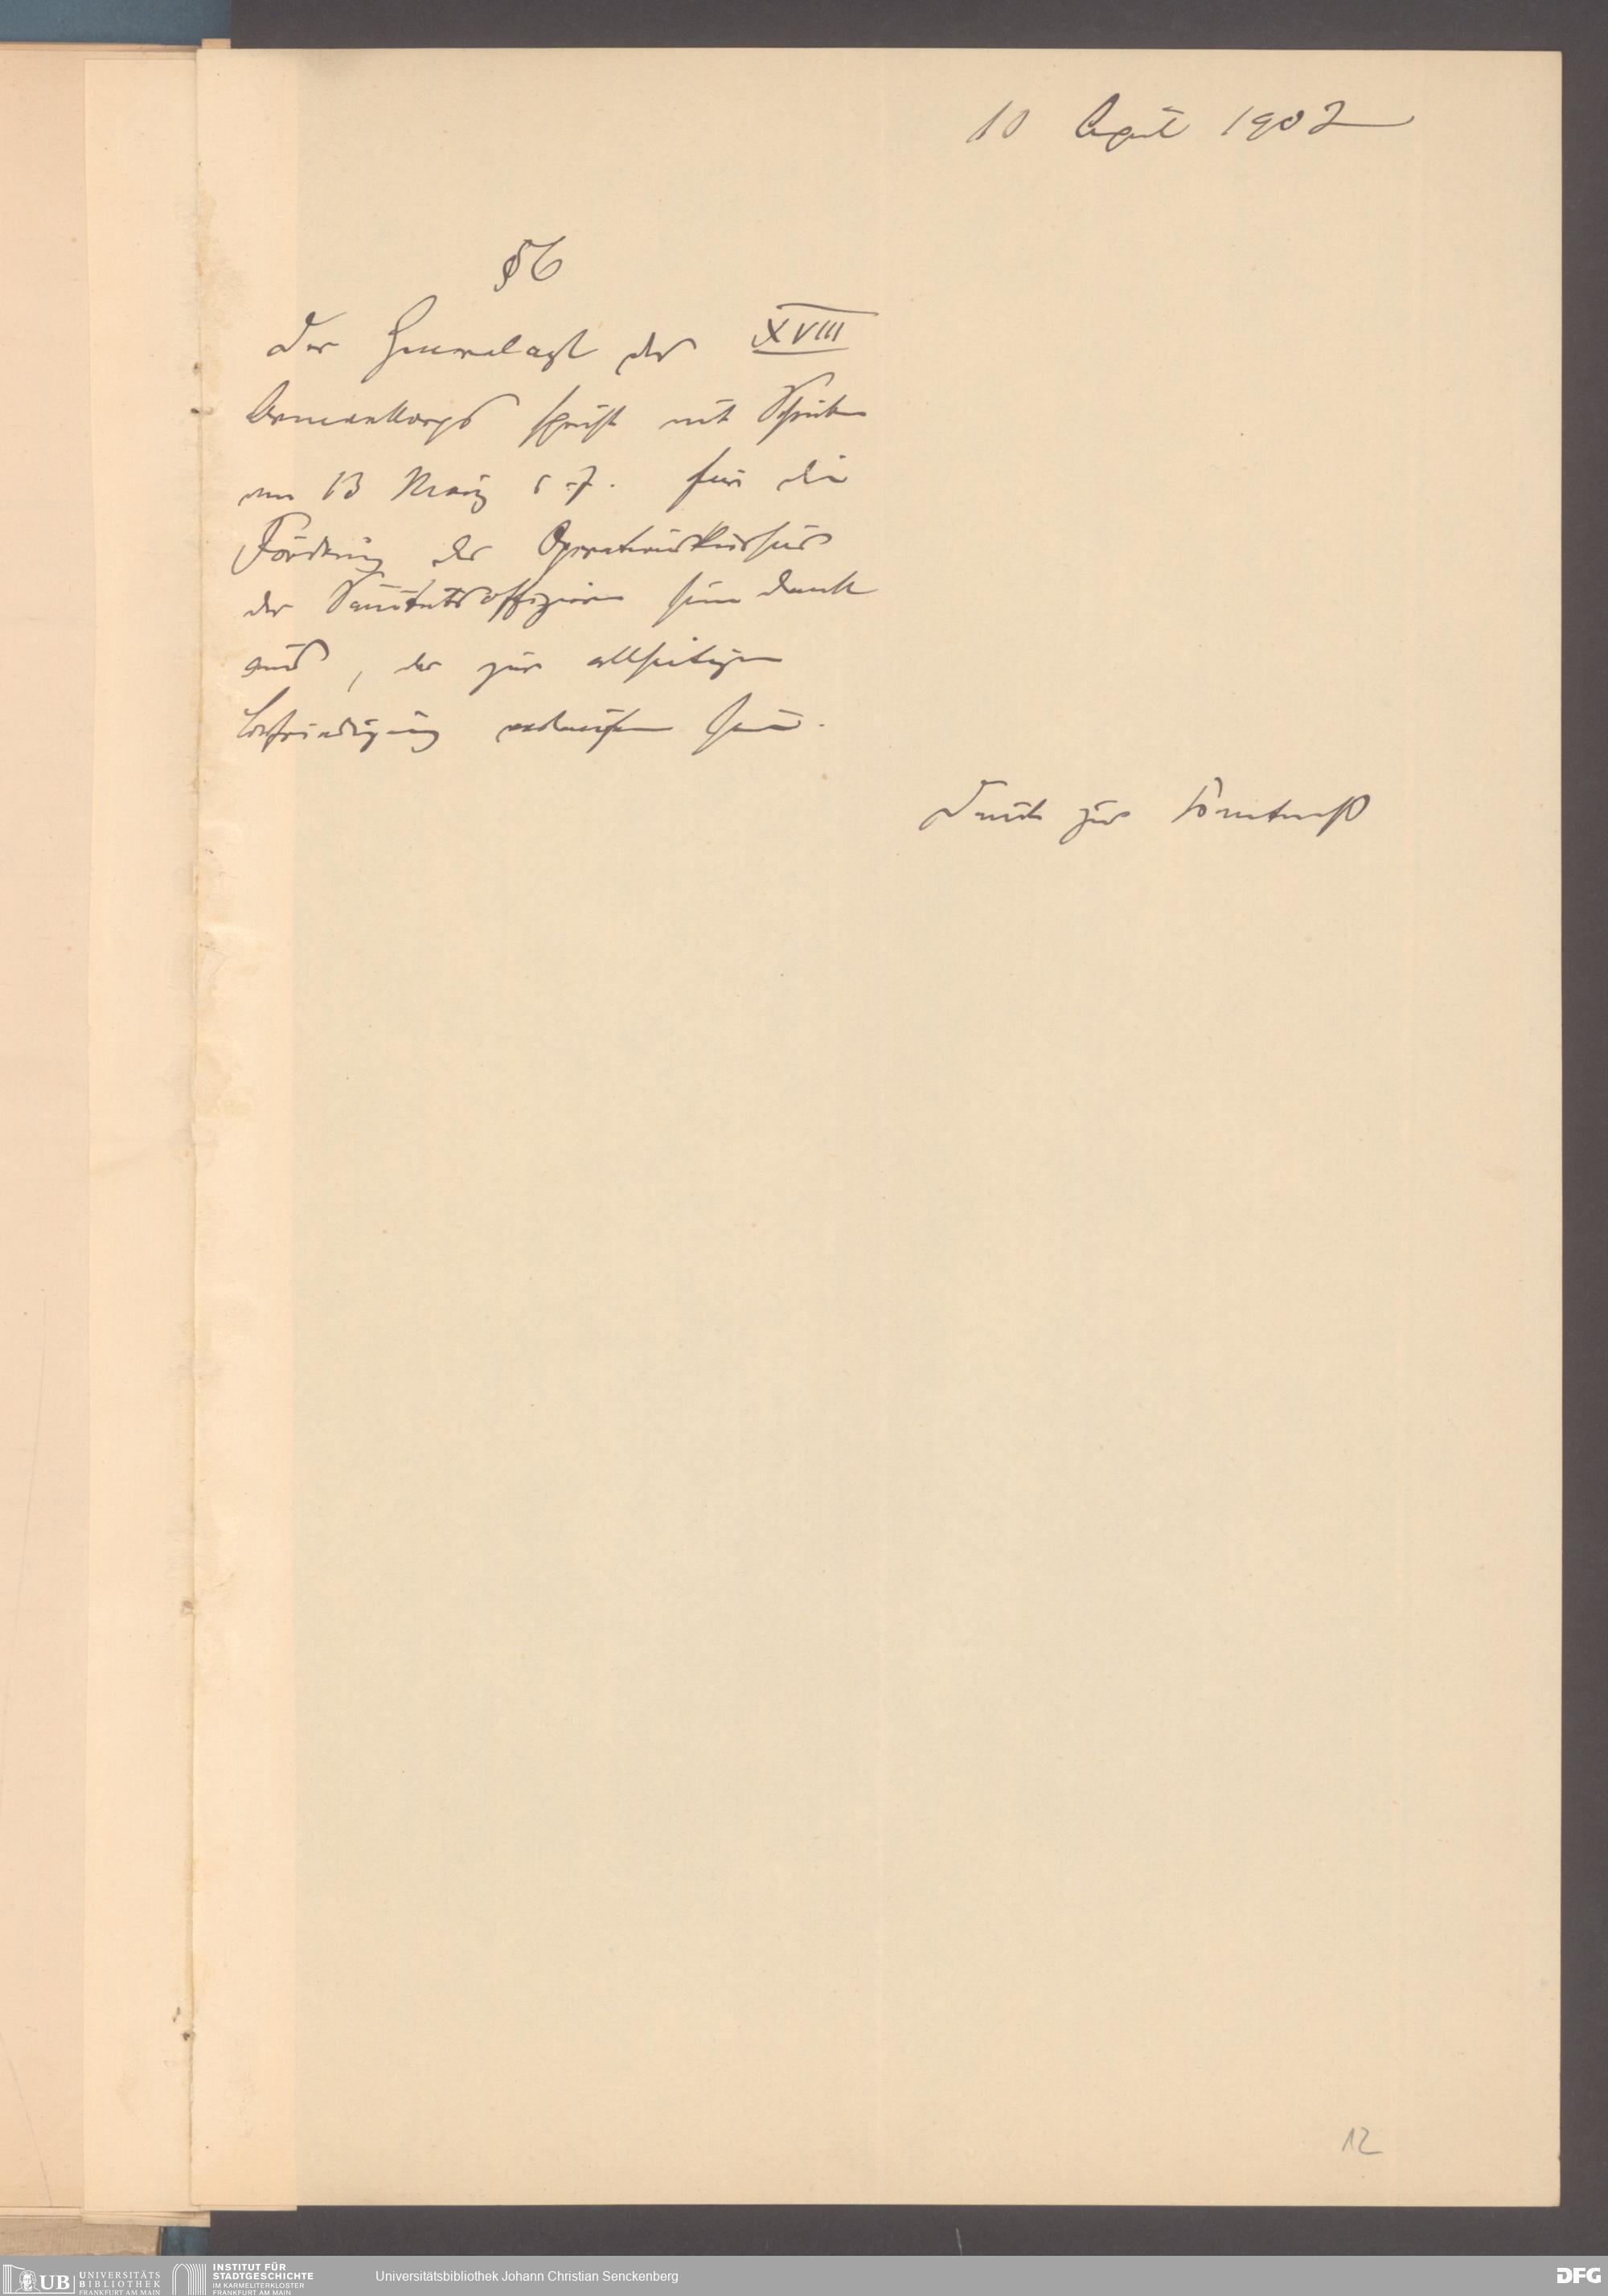 10 April 1902
§6
Der Generalarzt des XVIII
Armeekorps spricht mit Schreiben
vom 13 März d. J. für die
Förderung des Operationskursus
der Sanitätsoffiziere seinen Dank
aus, der zur allseitigen
Befriedigung verlaufen sei.
Dient zur Kenntniß
12
UB UNIVERSITÄTS
BIBLIOTHEK
FRANKFURT AM MAIN
INSTITUT FÜR
STADTGESCHICHTE
IM KARMELITERKLOSTER
FRANKFURT AM MAIN
Universitätsbibliothek Johann Christian Senckenberg
DFG